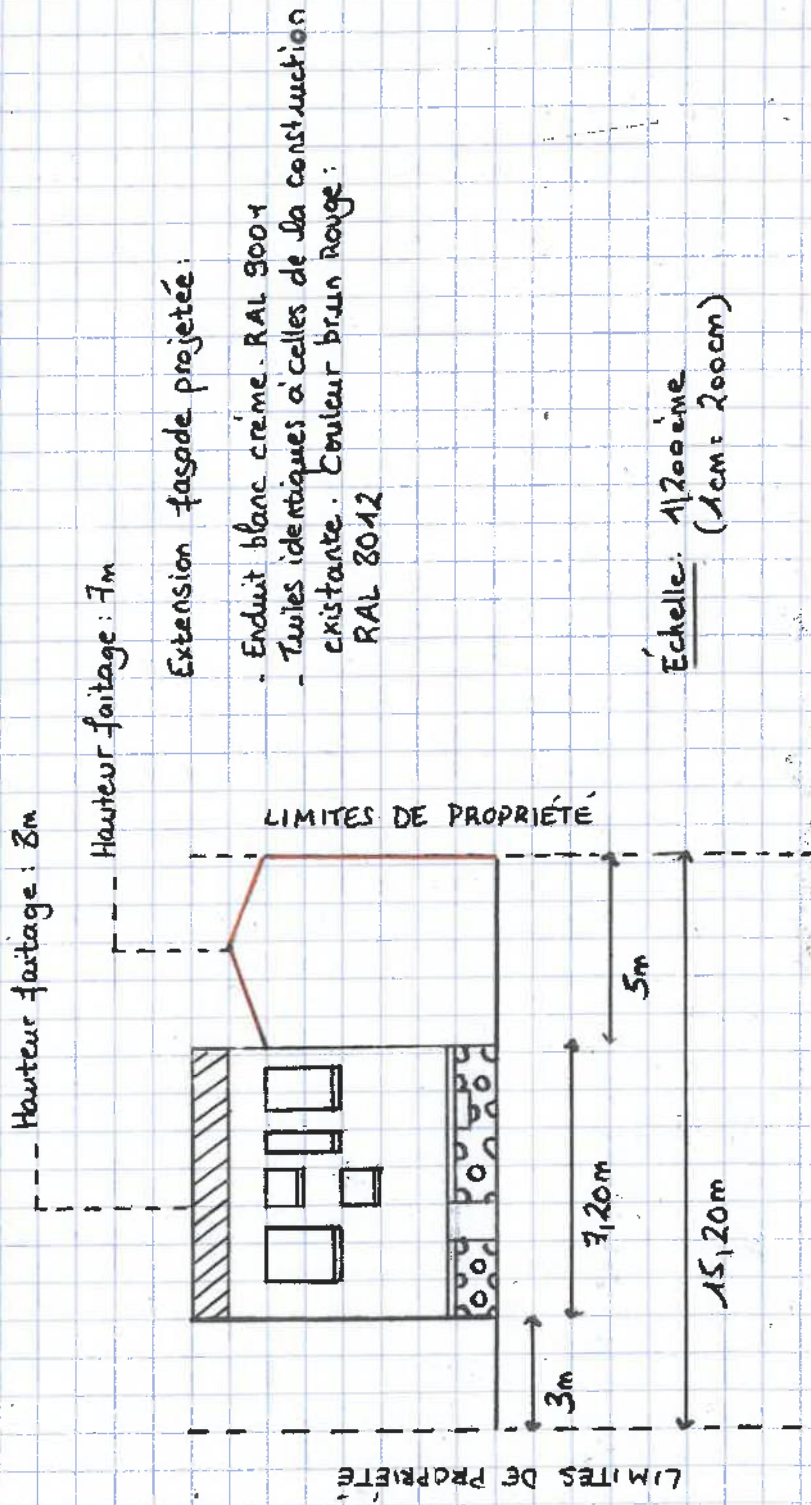 Hauteur faitage : 8m
Hauteur faitage : 7m
Extension façade projetée :
- Enduit blanc crème. RAL 9001
- Tuiles identiques à celles de la construction
existante. Couleur brun Rouge :
RAL 8012
LIMITES DE PROPRIÉTÉ
LIMITES DE PROPRIÉTÉ
3m
7,20m
5m
15,20m
Échelle : 1/200ème
(1cm = 200cm)